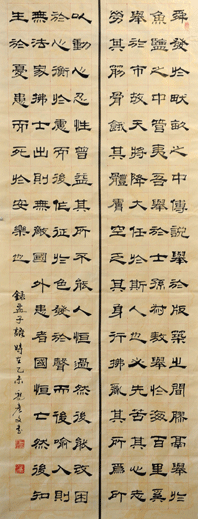 舜發於畎畝之中傅說舉於版築之間膠鬲舉於
魚鹽之中管夷吾舉於士孫叔敖舉於海百里奚
舉於市故天將降大任於斯人也必先苦其心志
勞其筋骨餓其體膚空乏其身行拂亂其所為所
以動心忍性曾益其所不能人恒過然後能改困
於心衡於慮而後作征於色發於聲而後喻入則
無法家拂士出則無敵國外患者國恒亡然後知
生於憂患而死於安樂也
錄孟子 乙未 書